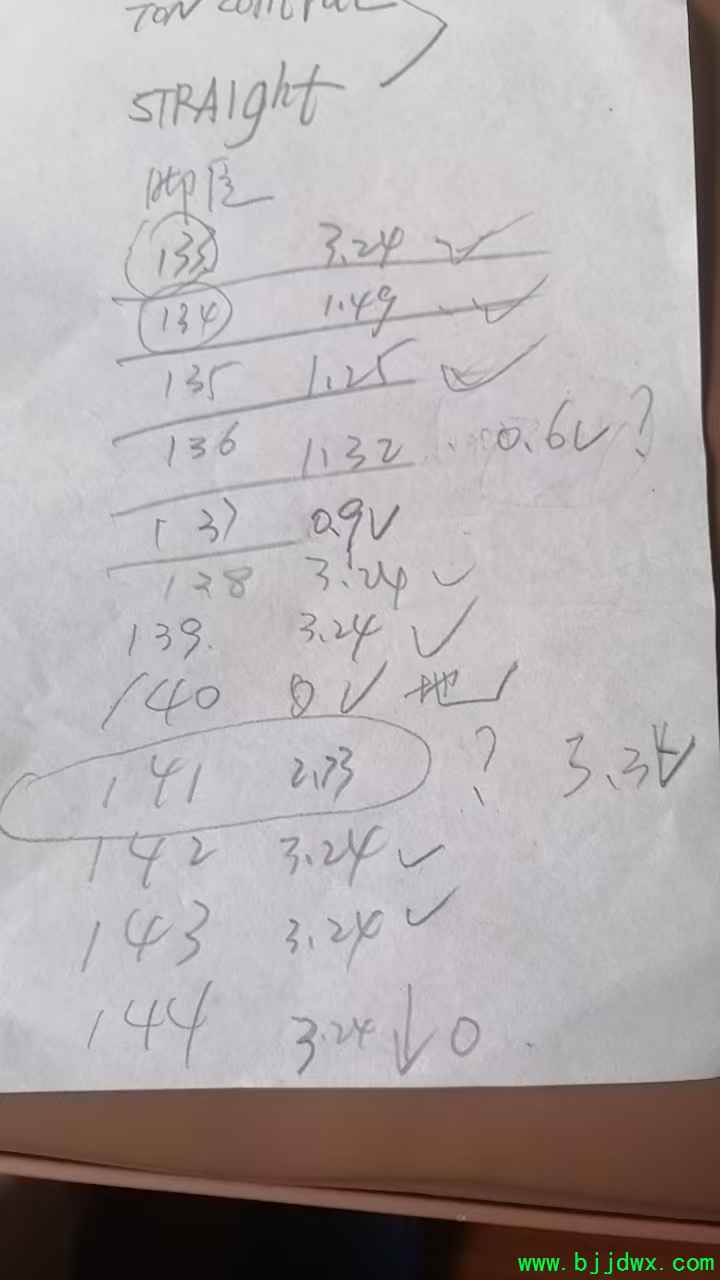 TON CONTROL
STRAIght
脚位
133 3.24 ✓
134 1.49 ✓
135 1.25 ✓
136 1.32 0.6V ?
137 0.9V
138 3.24 ✓
139. 3.24 ✓
140 0V 地 ✓
141 2.73 ? 3.3V
142 3.24 ✓
143 3.24 ✓
144 3.24 ↓ 0
www.bjjdwx.com